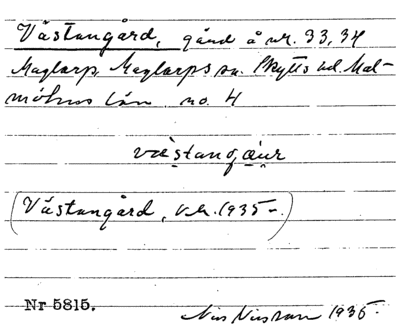 Västangård, gård å nr. 33, 34
Maglarp, Maglarps sn. Skytts hd. Mal-
möhus län no. 4
västangår
(Västangård, 1935-)
Nr 5815.
Nils Nilsson 1935.